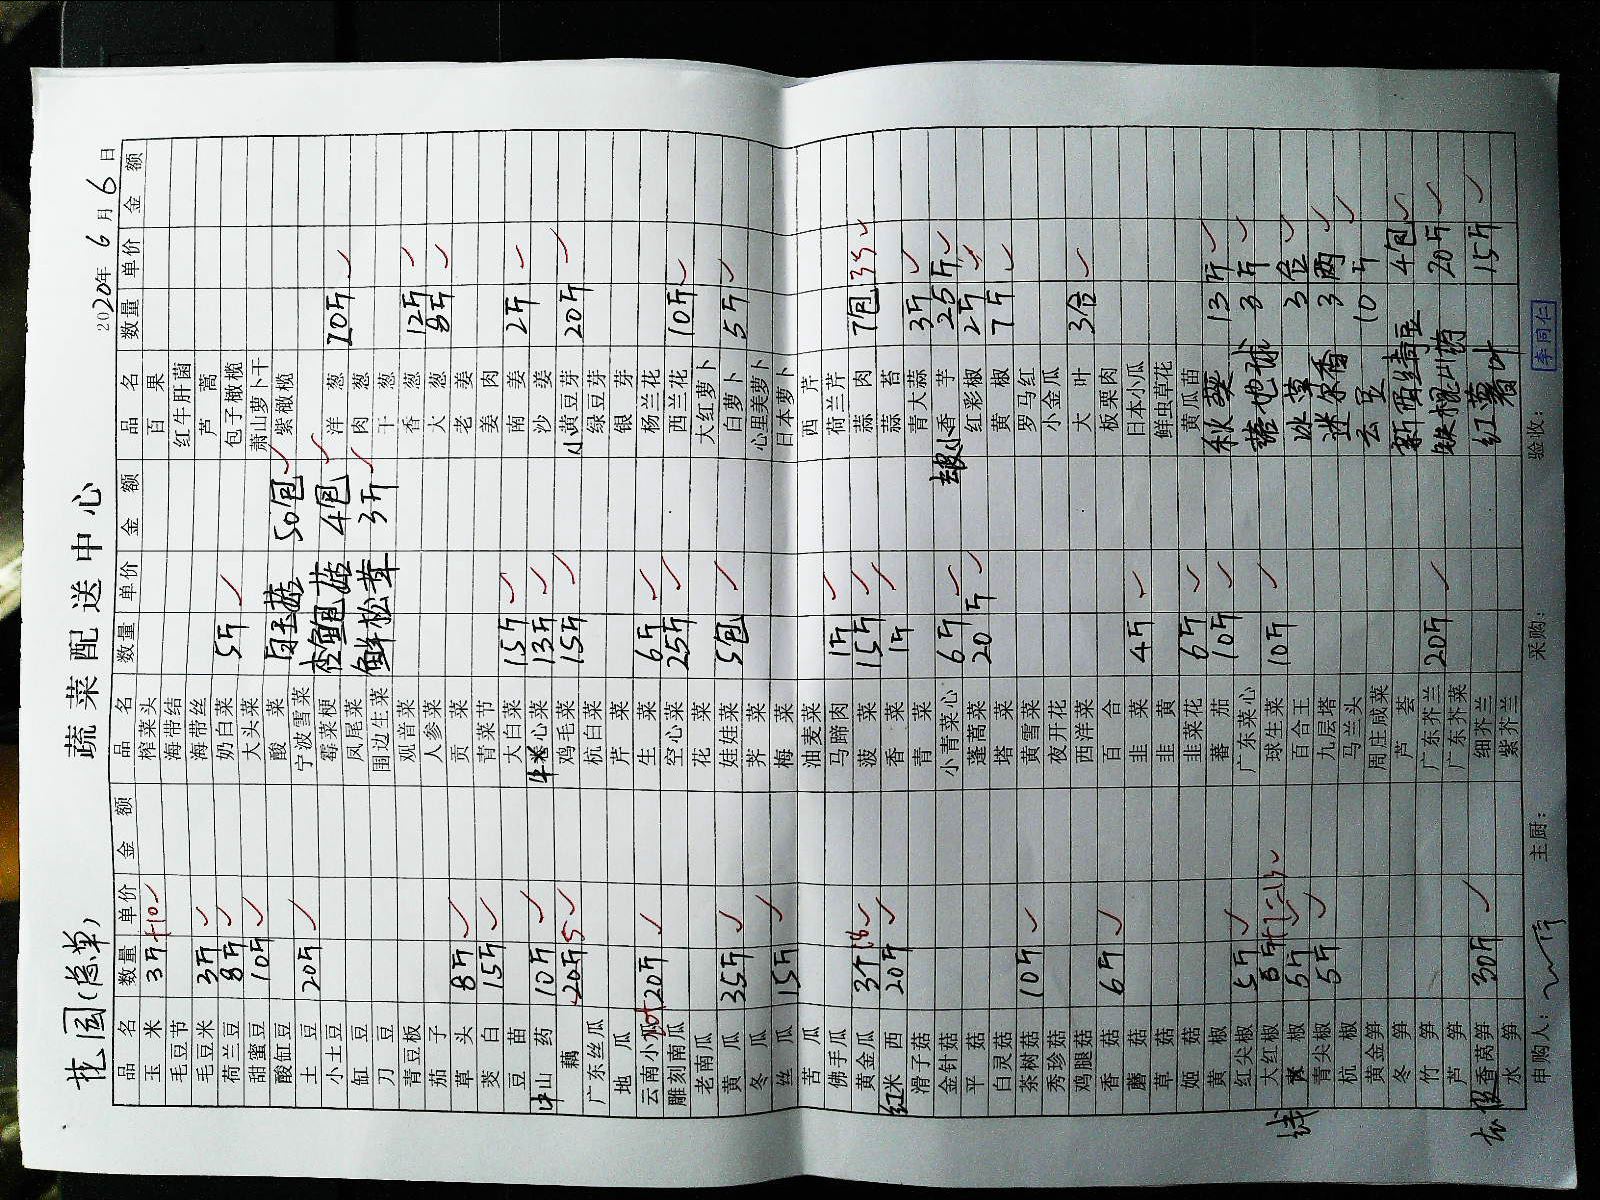 蔬菜配送中心
2020年6月6日
品名 数量 单价 金额 品名 数量 单价 金额 品名 数量 单价 金额
玉米 3斤 +10 榨菜头 百果
毛豆节 海带结 红牛肝菌
毛豆米 3斤 海带丝 芦蒿
荷兰豆 8斤 奶白菜 5斤 包子橄榄
甜蜜豆 10斤 大头菜 萧山萝卜干
酸缸豆 酸菜 白玉菇 50包 紫橄榄
土豆 20斤 宁波雪菜
小土豆 霉菜梗 杏鲍菇 4包 洋葱 20斤
缸豆 凤尾菜 肉葱
刀豆 围边生菜 鲜松茸 3斤 干葱
青豆板 观音菜 香葱 12斤
茄子 人参菜 大葱 8斤
草头 8斤 贡菜 老姜
茭白 15斤 青菜节 姜肉
豆苗 大白菜 15斤 南姜 2斤
山药 10斤 牛心菜 13斤 沙姜
藕 20斤 5 鸡毛菜 15斤 小黄豆芽 20斤
广东丝瓜 杭白菜 绿豆芽
地瓜 芹菜 银芽
云南小瓜 20斤 生菜 6斤 杨兰花
雕刻南瓜 空心菜 25斤 西兰花 10斤
老南瓜 花菜 大红萝卜
黄瓜 35斤 娃娃菜 5包 白萝卜 5斤
冬瓜 荠菜 心里美萝卜
丝瓜 15斤 梅菜 日本萝卜
苦瓜 油麦菜 西芹
佛手瓜 马蹄肉 1斤 荷兰芹
黄金瓜 3个 菠菜 15斤 蒜肉 7包
红米西 20斤 香菜 1斤 蒜苔
滑子菇 青菜 青大蒜 3斤
金针菇 小青菜心 6斤 香芋 25斤
平菇 蓬蒿菜 20斤 红彩椒 2斤
白灵菇 塔菜 黄椒 7斤
茶树菇 10斤 黄雪菜 罗马红
秀珍菇 夜开花 小金瓜
鸡腿菇 西洋菜 大叶 3合
香菇 6斤 百合 板栗肉
蘑菇 韭菜 4斤 日本小瓜
草菇 韭黄 鲜虫草花
姬菇 韭菜花 6斤 黄瓜苗
黄椒 蕃茄 10斤 秋葵 13斤
红尖椒 5斤 广东菜心 3斤
大红椒 球生菜 10斤 冰草 3合
椒 5斤 百合王 迷尔香 3两
青尖椒 5斤 九层塔 云豆 10斤
杭椒 马兰头
黄金笋 周庄咸菜 4包
冬笋 芦荟
竹笋 广东芥兰 20斤 铁棍山药 20斤
芦笋 广东芥菜
香莴笋 30斤 细芥兰 红薯叶 15斤
水笋 紫芥兰
申购人： 主厨： 采购： 验收： 李同仁